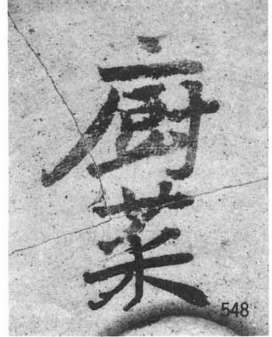 厨菜
548